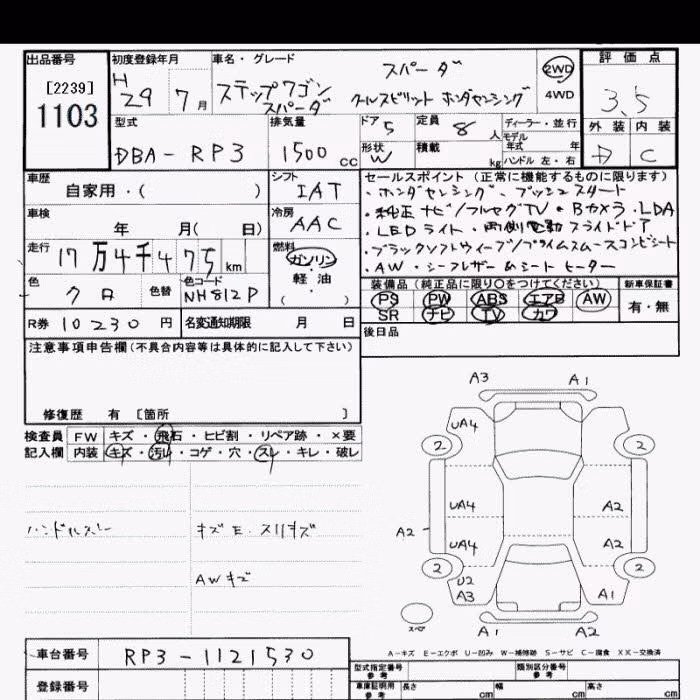 出品番号
[2239]
1103
初度登録年月
H 29 7月
車名・グレード
ステップワゴン スパーダ
スパーダ
クールスピリット ホンダセンシング
2WD
4WD
評価点
3.5
外装 内装
D C
型式
DBA-RP3
排気量
1500 cc
ドア 5
定員 8 人
形状 W
積載 kg
ディーラー・並行
モデル
年式 年
ハンドル 左・右
車歴
自家用・( )
シフト
IAT
車検
年 月( 日)
冷房
AAC
走行
17万4千475km
燃料
ガソリン
軽・油
( ・ )
色
クロ
色替
色コード
NH812P
R券 10230円
名変通知期限 月 日
セールスポイント(正常に機能するものに限ります)
・ホンダセンシング・プッシュスタート
・純正ナビ/フルセグTV・Bカメラ・LDA
・LEDライト・両側電動スライドドア
・ブラックソフトウィーブ/プライムスムースコンビシート
・AW・シーフレザー&シートヒーター
装備品(純正品に限り○をつけてください)
PS PW ABS エアB AW
SR ナビ TV カワ
新車保証書
有・無
後日品
注意事項申告欄(不具合内容等は具体的に記入して下さい)
修復歴 有 [箇所 ]
検査員 FW キズ・飛石・ヒビ割・リペア跡・×要
記入欄 内装 キズ・汚れ・コゲ・穴・スレ・キレ・破レ
ハンドルスレ
キズE・スリキズ
AWキズ
A3 A1
UA4
2 2
UA4 A2
A2
UA4 A2
2 2
U2
A3 A1
スペア
A1 A2
A-キズ E-エクボ U-凹み W-補修跡 S-サビ C-腐食 XX-交換済
車台番号
RP3-1121530
登録番号
型式指定番号
参考
類別区分番号
参考
車庫証明用
参考
長さ cm
幅 cm
高さ cm